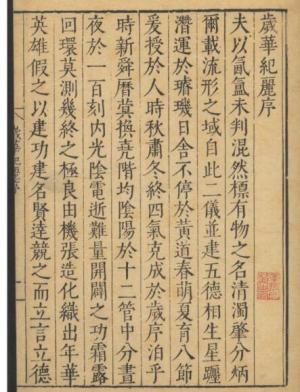 歲華紀麗序
夫以氤氳未判混然標有物之名清濁肇分炳
爾載流形之域自此二儀並建五德相生星躔
潛運於璿璣日舎不停於黃道春萌夏育八節
爰授於人時秋肅冬終四氣克成於歲序泊乎
時新舜曆蓂換堯階均陰陽於十二管中分晝
夜於一百刻内光陰電逝難量開闔之功霜露
回環莫測幾終之極良由機張造化織出年華
英雄假之以建功建名賢達競之而立言立德